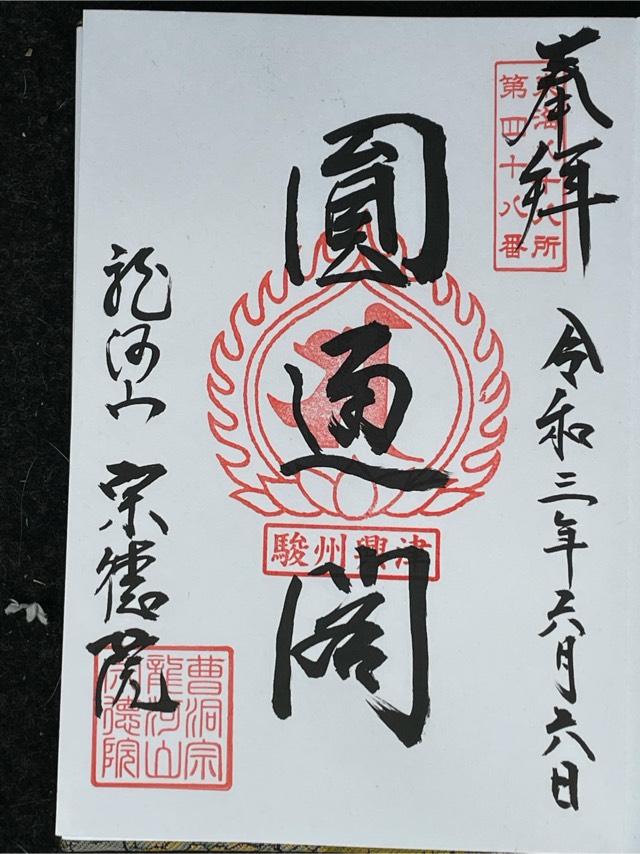 奉拝
東海百八所
第四十八番
令和三年六月六日
圓通閣
駿州興津
龍河山 宗徳院
曹洞宗
龍河山
宗徳院